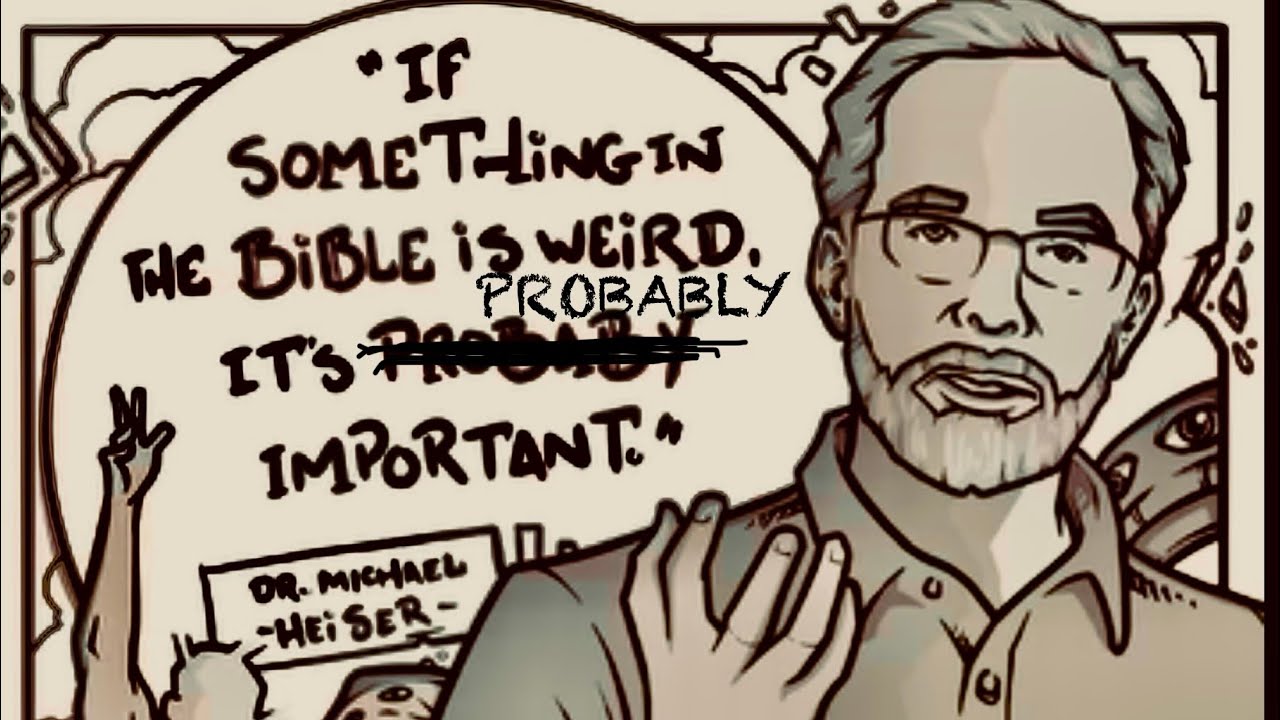 "IF
SOMETHING IN
THE BIBLE IS WEIRD.
PROBABLY
IT'S PROBABY
IMPORTANT."
DR. MICHAEL
-HEISER-